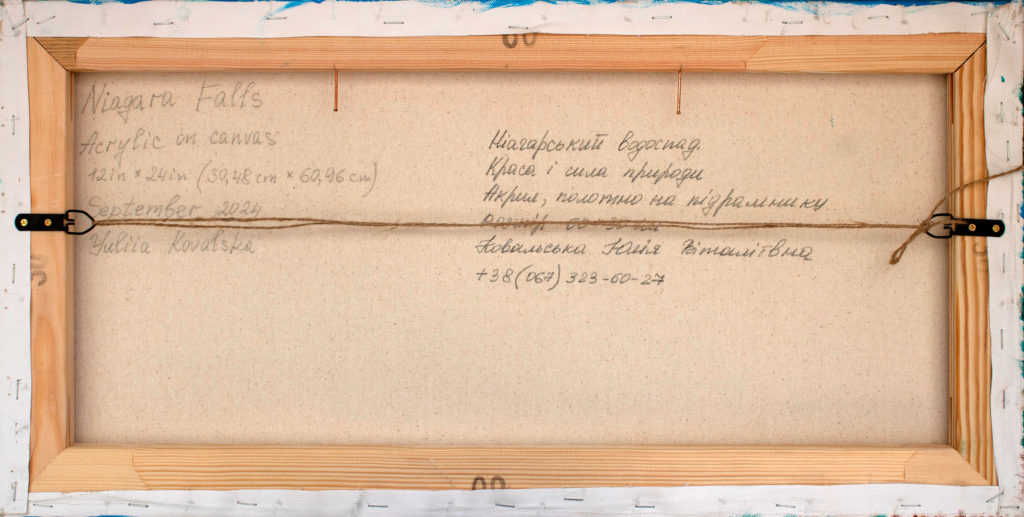 Niagara Falls
Acrylic on canvas
12in × 24in (30,48 cm × 60,96 cm)
September 2024
Yuliia Kovalska
Ніагарський водоспад.
Краса і сила природи
Акрил, полотно на підрамнику
Розмір 60×30 см
Ковальська Юлія Віталіївна
+38(067) 323-60-27
60
30
60